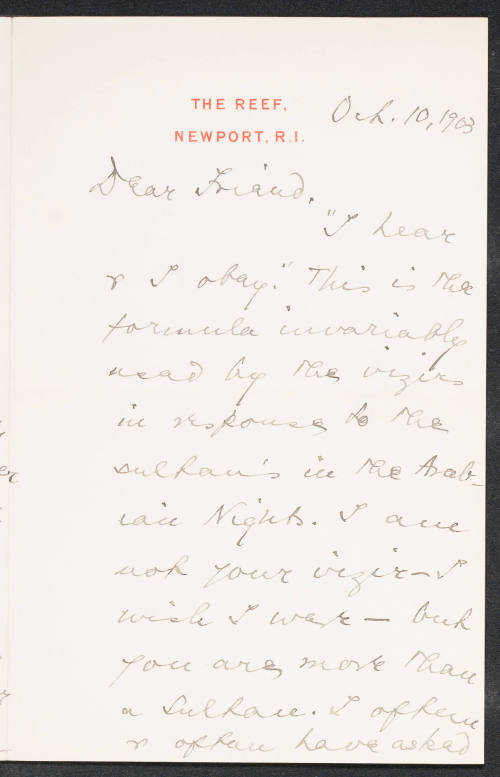 THE REEF,
NEWPORT, R.I.
Oct. 10, 1903
Dear Friend,
"I hear
& I obey." This is the
formula invariably
used by the vizirs
in response to the
sultan's in the Arab-
ian Nights. I am
not your vizir – I
wish I were – but
you are more than
a Sultan. I often
& often have asked